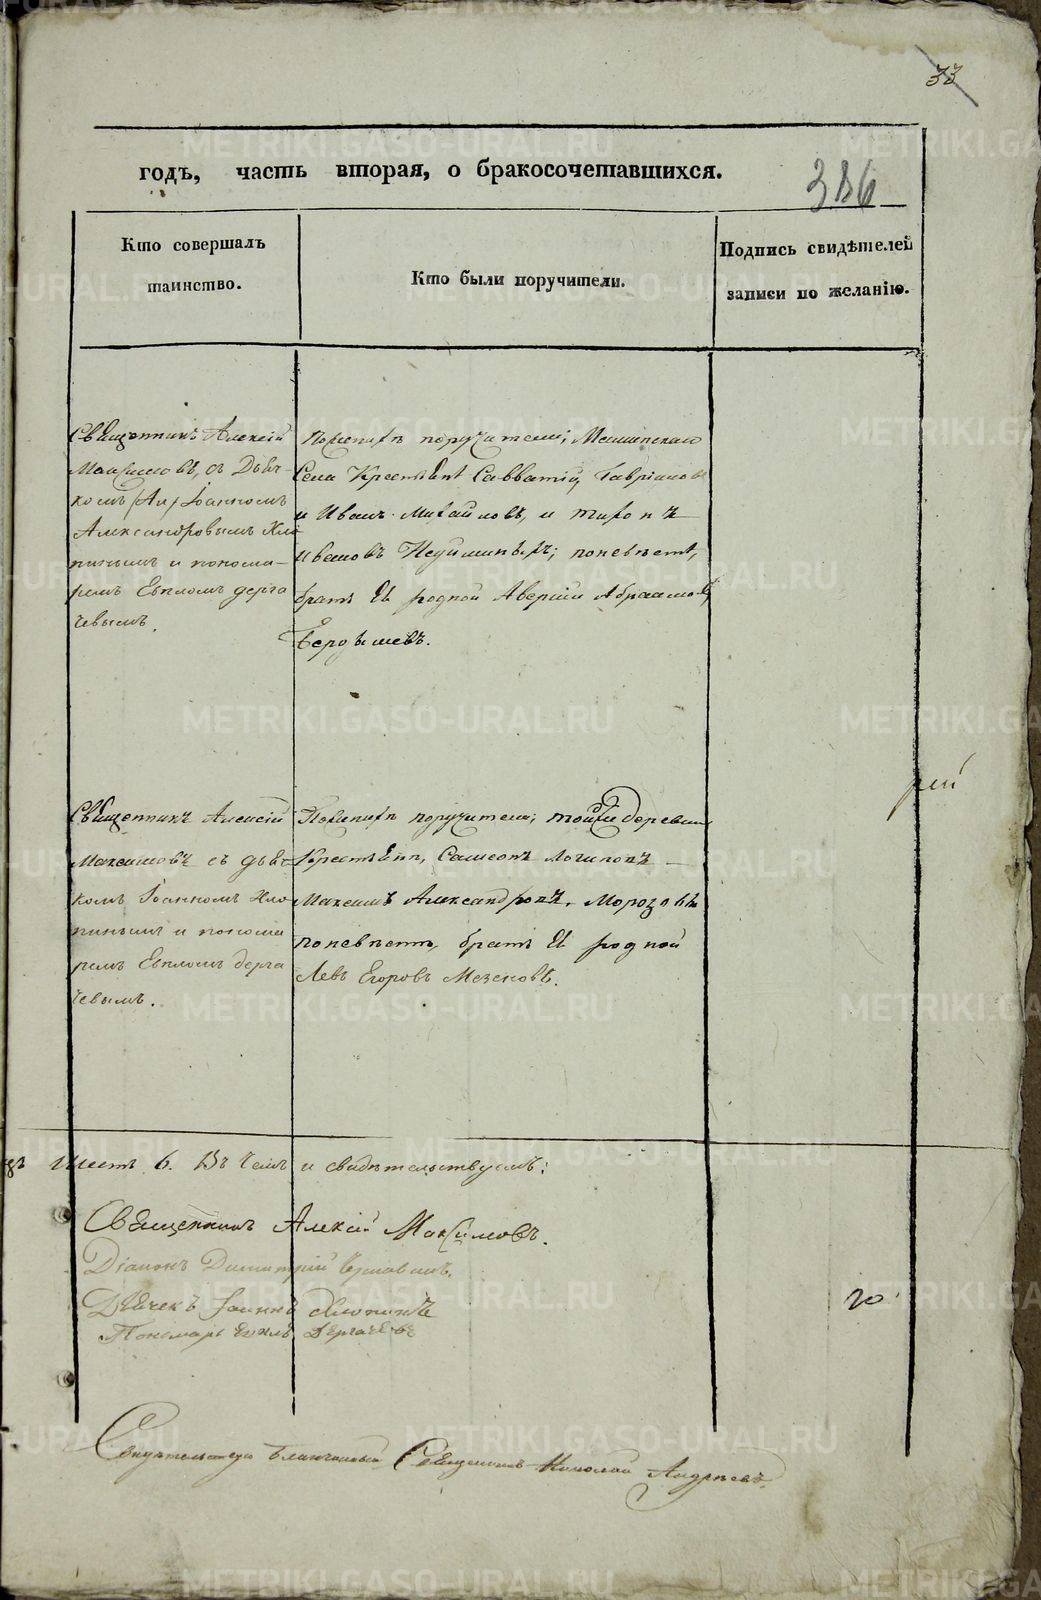 33
годъ, часть вторая, о бракосочетавшихся.
386
Кто совершалъ
таинство.
Кто были поручители.
Подпись свидѣтелей
записи по желанію.
Священникъ Алексій
Максимовъ, съ Дьяч-
комъ Іоанномъ
Александровымъ Хло
пинымъ и понома-
ремъ Евпломъ Дерга
чевымъ.
По женихѣ поручители;
Села Крестьяне Савватій Гавриловъ
и Иванъ Михайловъ, и
Ивановъ по невѣстѣ,
братъ Ея родной Аверкій Абрамовъ
Бердышевъ.
Священникъ Алексій
Максимовъ съ дьяч
комъ Іоанномъ Хло
пинымъ и понома
ремъ Евпломъ Дерга
чевымъ.
По женихѣ поручители; той же деревни
Крестьяне, Самсонъ Логиновъ
Максимъ Александровъ Морозовы
по невѣстѣ, братъ Ея родной
Левъ Егоровъ Мезеновъ.
рей
6. Въ чемъ и свидѣтельствуемъ:
Священникъ Алексій Максимовъ.
Діаконъ Димитрій
Дьячекъ Іоаннъ Хлопинъ
Пономарь Евплъ Дергачевъ
20
Свидѣтельствовалъ Благочинный Священникъ Николай Андреевъ.
METRIKI.GASO-URAL.RU